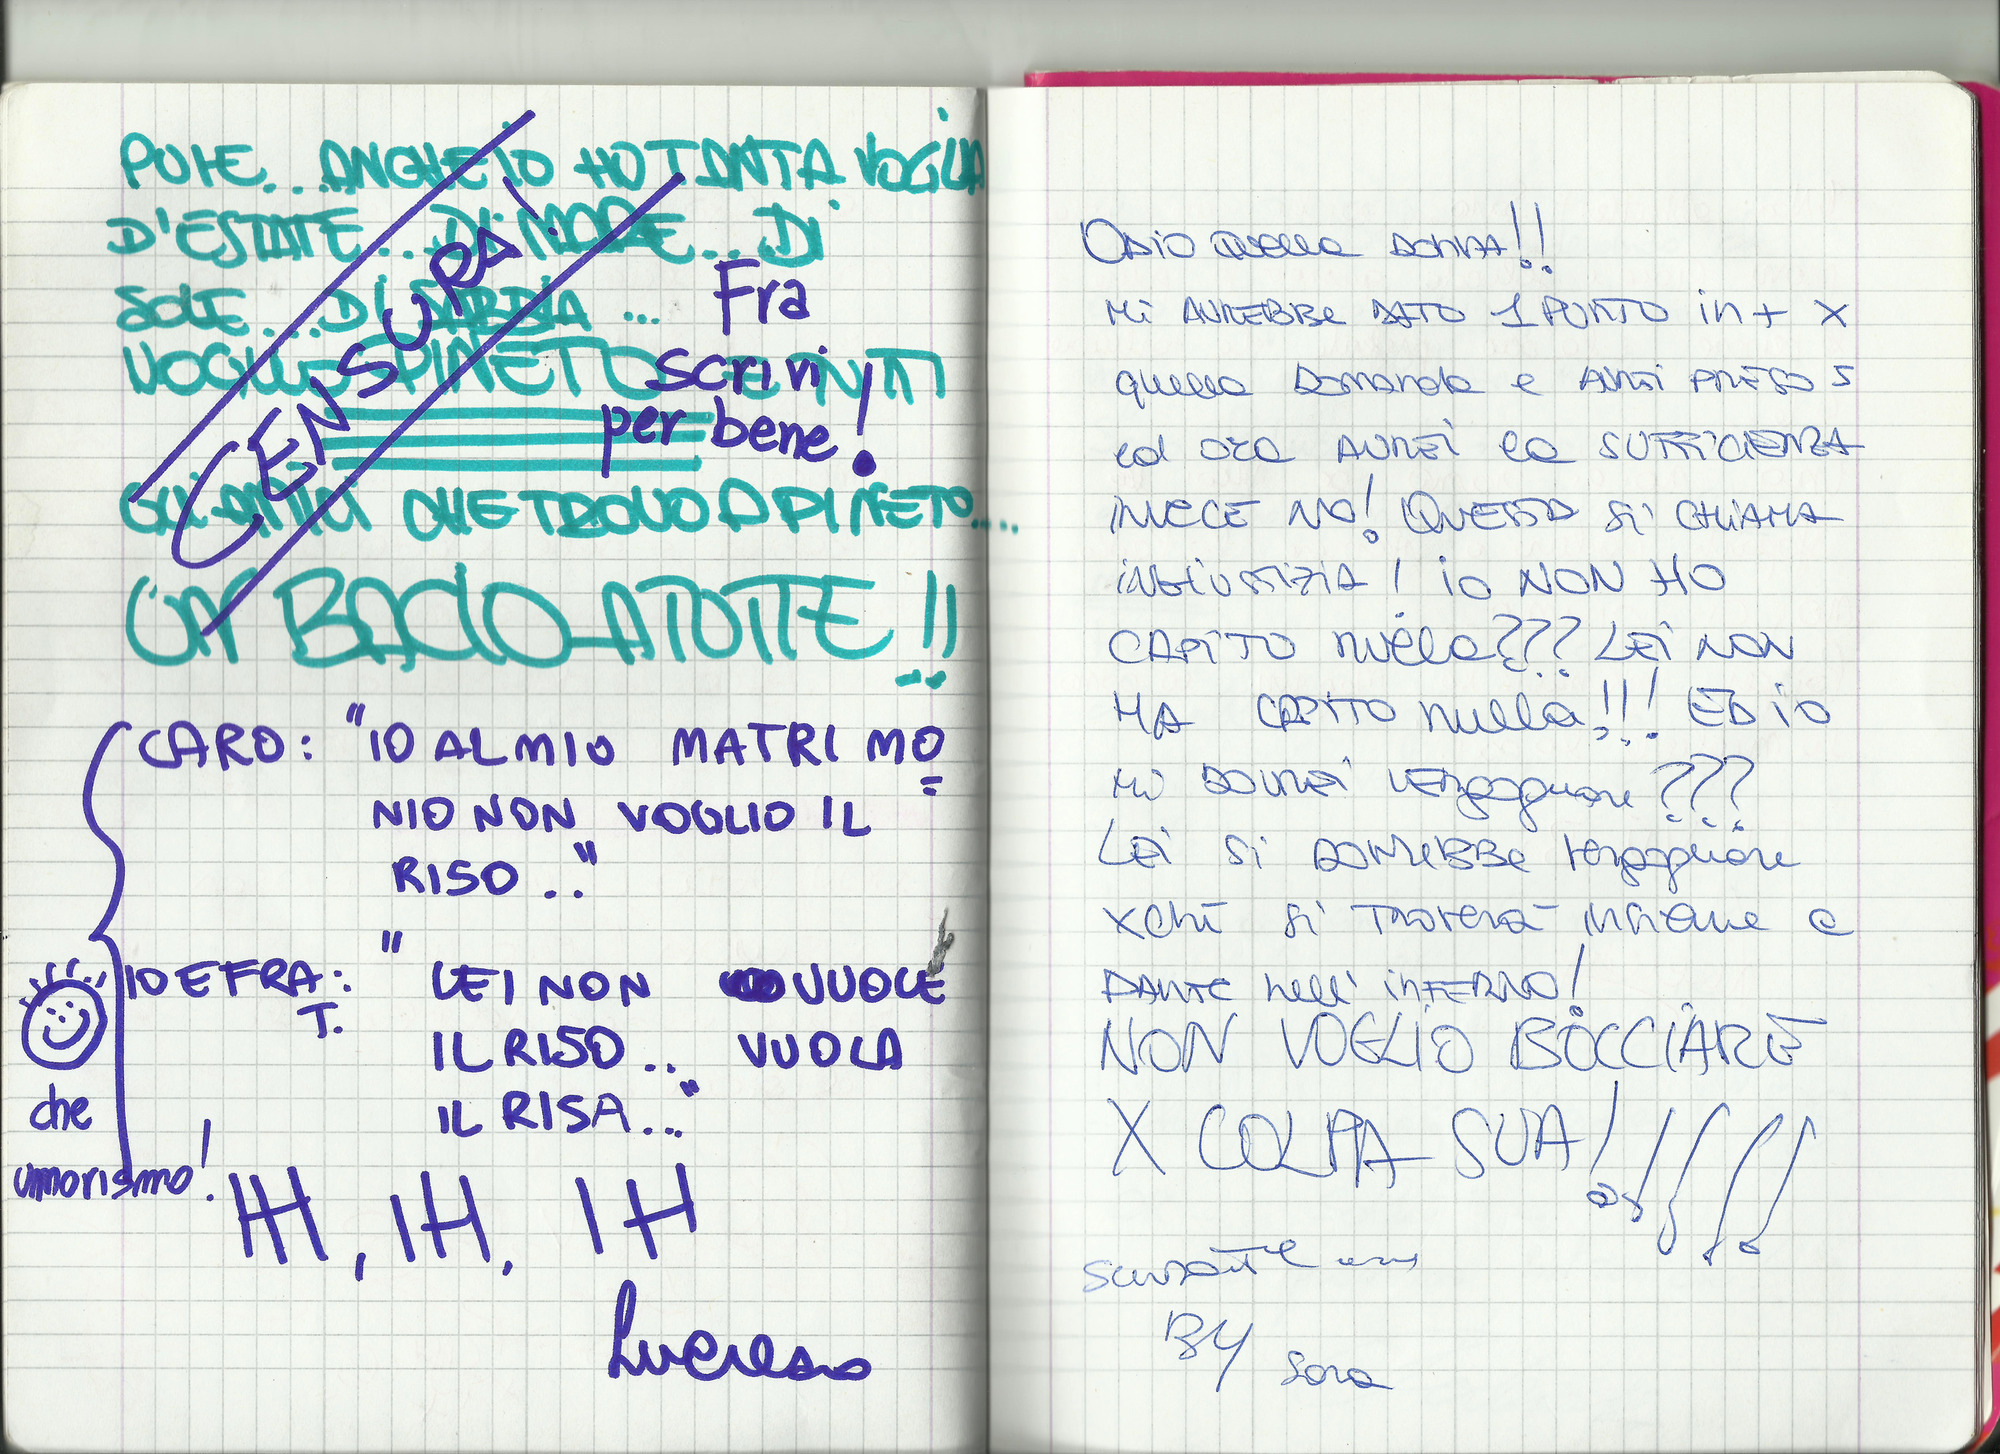 PURE... ANCHE IO HO TANTA VOGLIA
D'ESTATE... DI MARE... DI
SOLE... DI SABBIA...
VOGLIO PINETO E TUTTI
GLI AMICI CHE TROVO A PINETO....
UN BACIO A TUTTE!!
CENSURA!
Fra
scrivi
per bene!
CARO: "IO AL MIO MATRIMO
NIO NON VOGLIO IL
RISO.."
IO E FRA: " LEI NON VUOLE
T.
IL RISO... VUOLA
IL RISA..."
che
umorismo!
IH, IH, IH
Lucrezia
Odio quella donna!!
Mi avrebbe dato 1 punto in + x
quella domanda e avrei preso 5
ed ora avrei la sufficienza
invece no! Questa si chiama
ingiustizia! io NON HO
CAPITO nulla??? Lei NON
HA CAPITO nulla!!! ED io
mi dovrei vergognare???
Lei si dovrebbe vergognare
xchè si troverà insieme a
Dante nell'inferno!
NON VOGLIO BOCCIARE
X COLPA SUA!!!!!
BY Sara